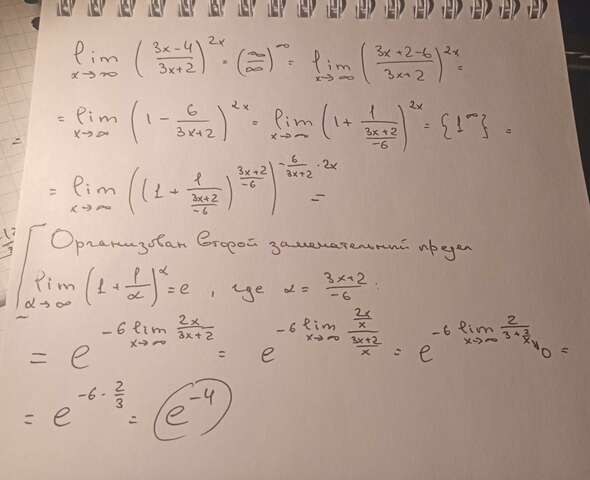 lim x→∞ ((3x-4)/(3x+2))^(2x) = (∞/∞)^∞ = lim x→∞ ((3x+2-6)/(3x+2))^(2x) =
= lim x→∞ (1 - 6/(3x+2))^(2x) = lim x→∞ (1 + 1/((3x+2)/(-6)))^(2x) = {1^∞} =
= lim x→∞ ((1 + 1/((3x+2)/(-6)))^((3x+2)/(-6)))^(-6/(3x+2) · 2x) =
Организован второй замечательный предел
lim α→∞ (1 + 1/α)^α = e , где α = (3x+2)/(-6) :
= e^(-6 lim x→∞ 2x/(3x+2)) = e^(-6 lim x→∞ (2x/x)/((3x+2)/x)) = e^(-6 lim x→∞ 2/(3+3/x↘0)) =
= e^(-6 · 2/3) = e^(-4)